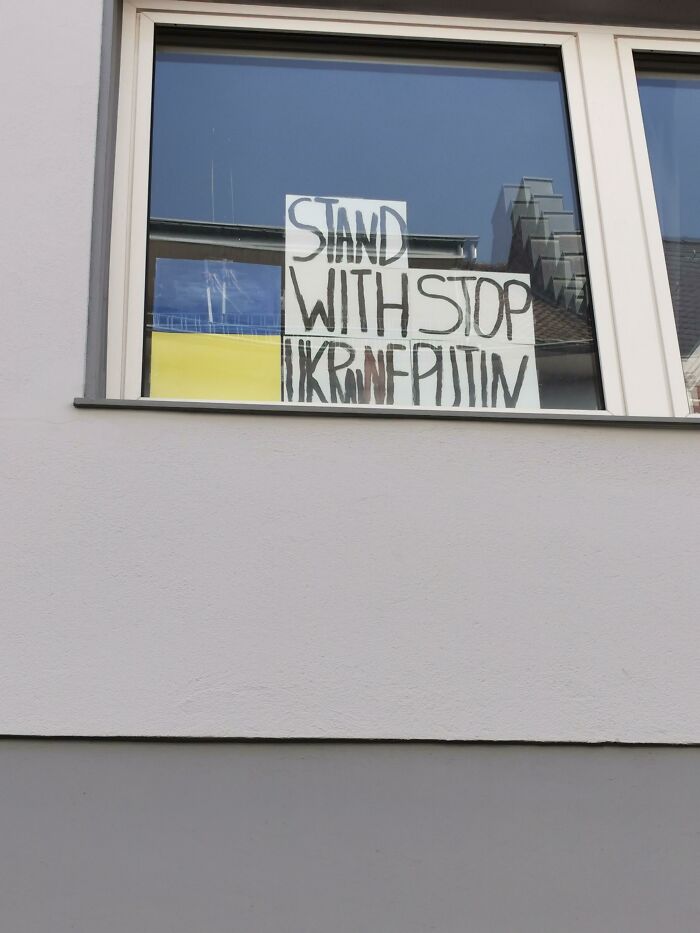 STAND
WITH STOP
UKRAINE PUTIN